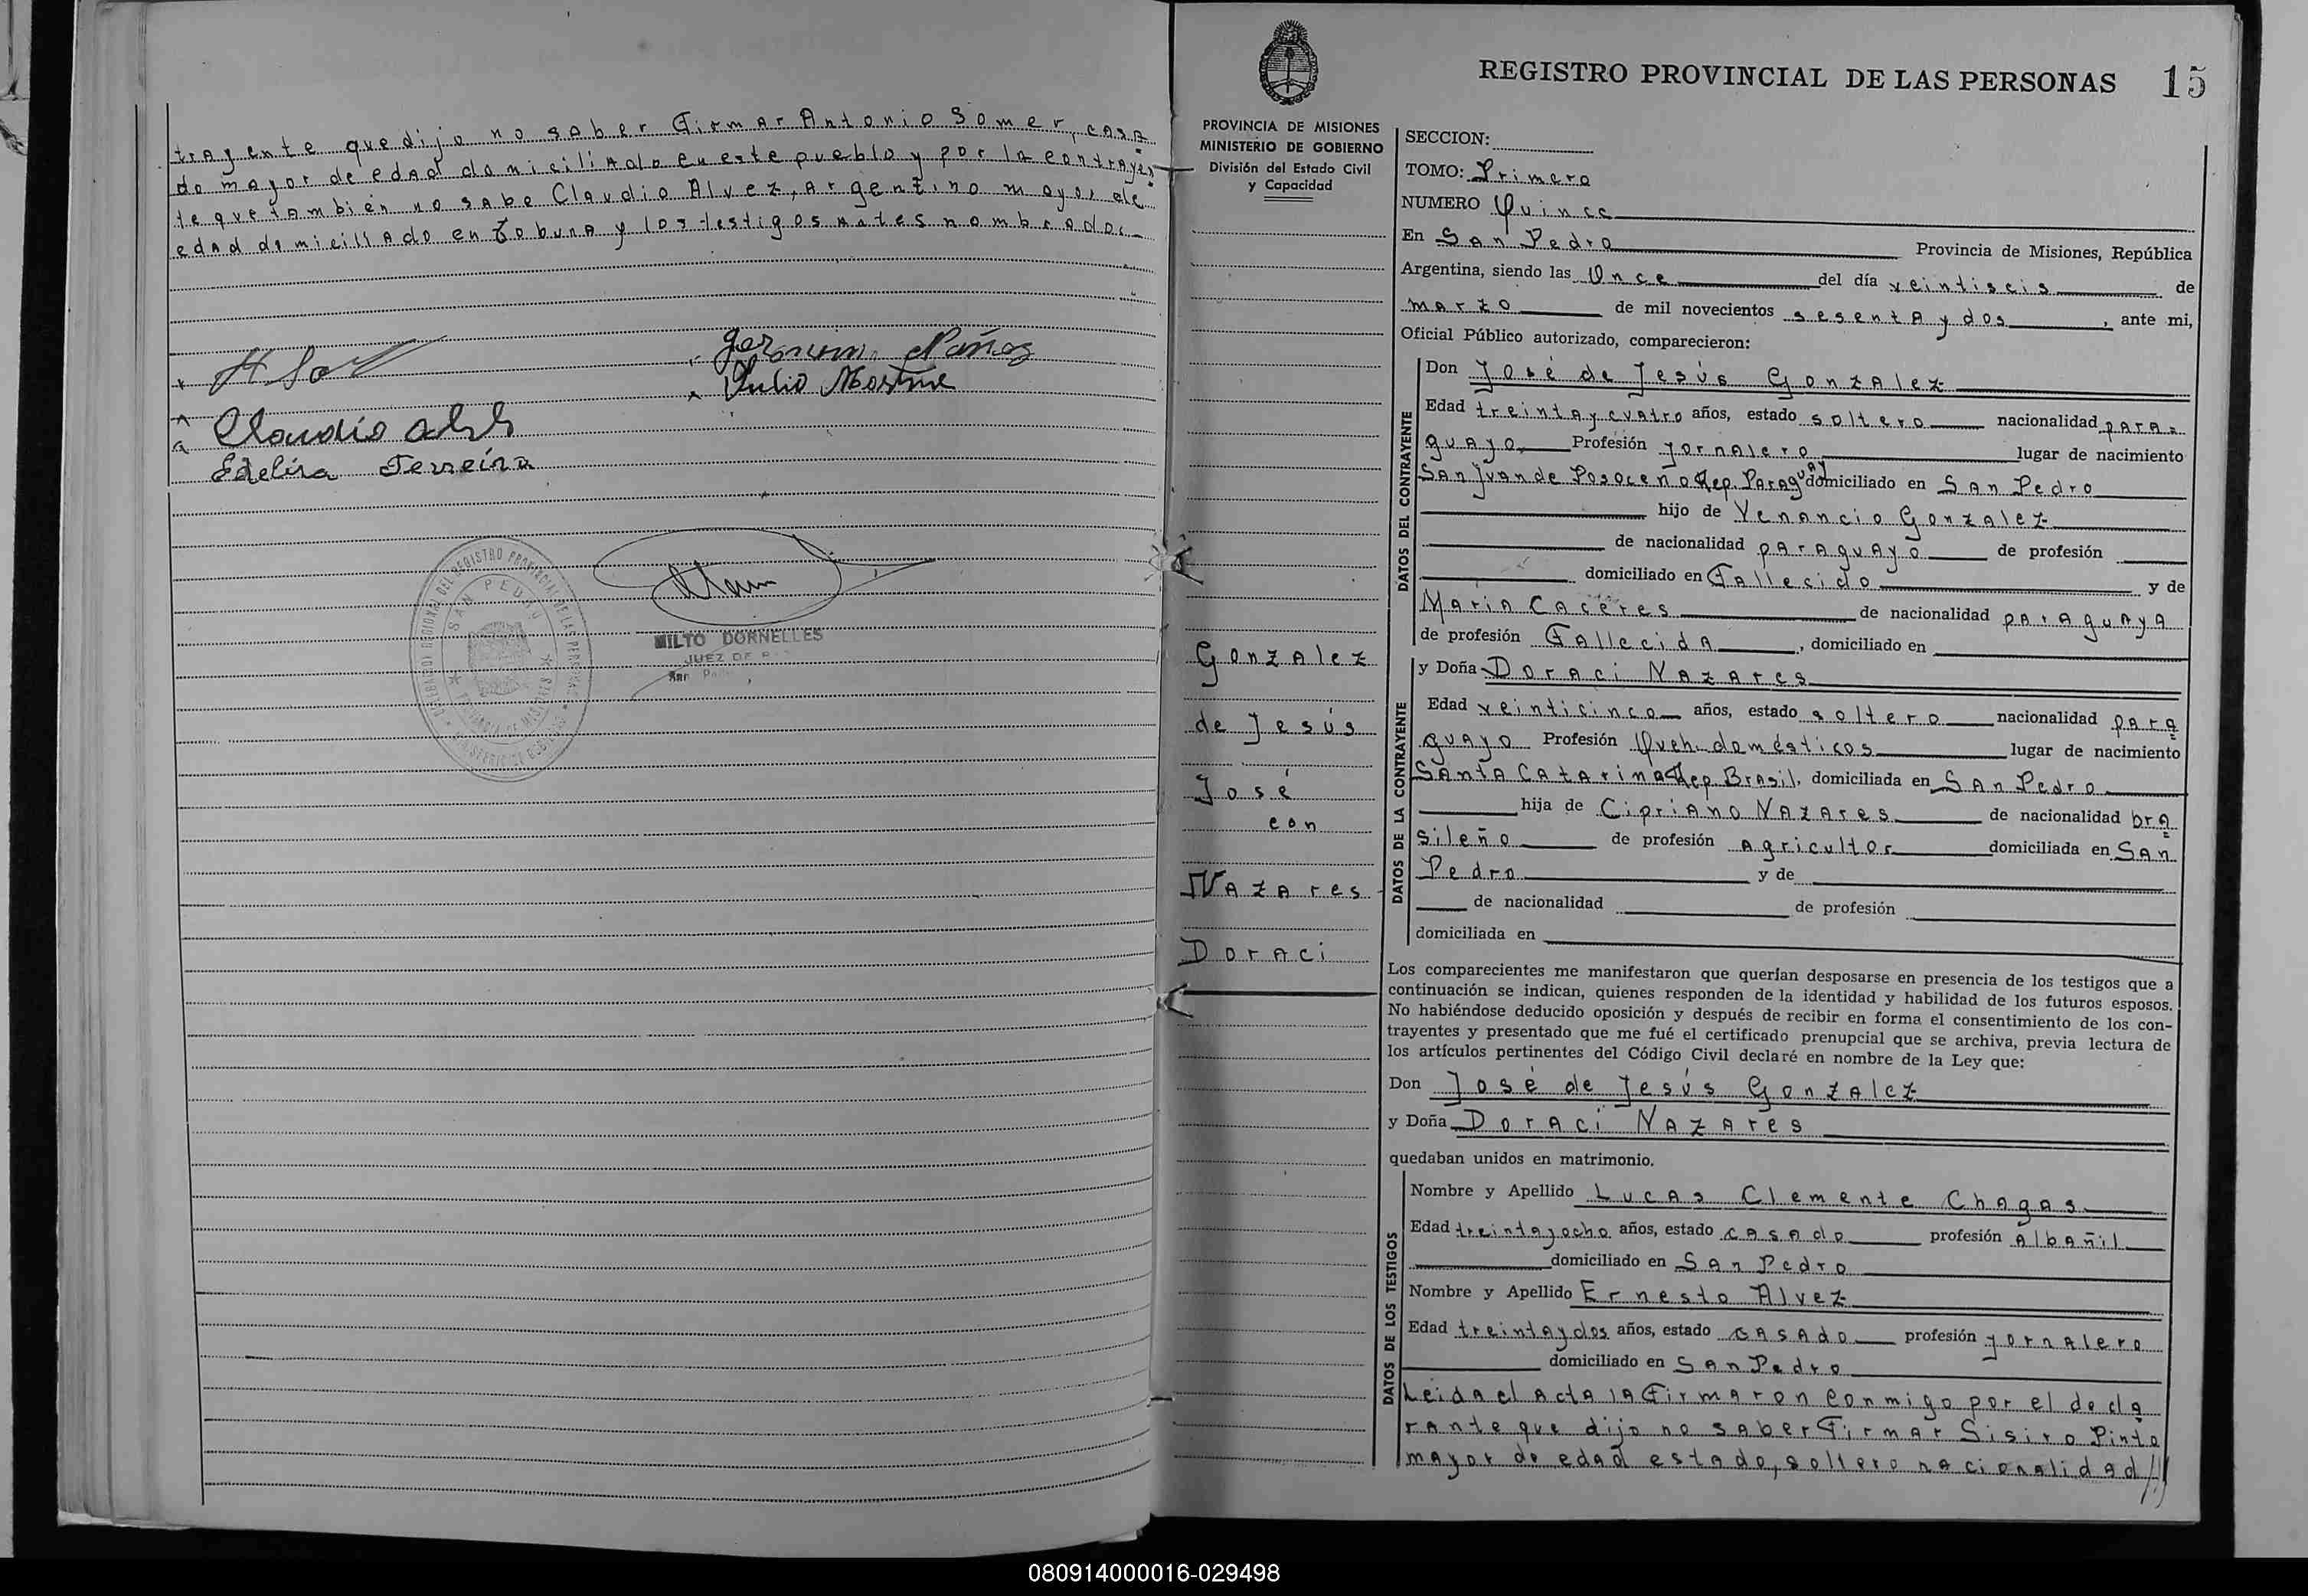 trayente que dijo no saber Firmar Antonio Somer, casa
do mayor de edad domiciliado en este pueblo y por la contrayen
te que también no sabe Claudio Alvez, argentino mayor de
edad domiciliado en Tobuna y los testigos antes nombrados
Claudio
Edelira Ferreira
Julio
SAN PEDRO
MILTO DORNELLES
JUEZ DE
REGISTRO PROVINCIAL DE LAS PERSONAS 15
PROVINCIA DE MISIONES
MINISTERIO DE GOBIERNO
División del Estado Civil
y Capacidad
Gonzalez
de Jesús
José
con
Nazares
Doraci
SECCION:
TOMO: Primero
NUMERO Quince
En San Pedro Provincia de Misiones, República
Argentina, siendo las Once del día veintiseis de
marzo de mil novecientos sesenta y dos, ante mi,
Oficial Público autorizado, comparecieron:
DATOS DEL CONTRAYENTE
Don José de Jesús Gonzalez
Edad treinta y cuatro años, estado soltero nacionalidad para=
guayo Profesión jornalero lugar de nacimiento
San Juan de Rep. Paraguay domiciliado en San Pedro
hijo de Venancio Gonzalez
de nacionalidad paraguayo de profesión
domiciliado en Fallecido y de
Maria Caceres de nacionalidad paraguaya
de profesión Fallecida, domiciliado en
DATOS DE LA CONTRAYENTE
y Doña Doraci Nazares
Edad veinticinco años, estado soltero nacionalidad para=
guayo Profesión Queh. domésticos lugar de nacimiento
Santa Catarina Rep. Brasil, domiciliada en San Pedro
hija de Cipriano Nazares de nacionalidad bra=
sileño de profesión agricultor domiciliada en San
Pedro y de
de nacionalidad de profesión
domiciliada en
Los comparecientes me manifestaron que querían desposarse en presencia de los testigos que a
continuación se indican, quienes responden de la identidad y habilidad de los futuros esposos.
No habiéndose deducido oposición y después de recibir en forma el consentimiento de los con-
trayentes y presentado que me fué el certificado prenupcial que se archiva, previa lectura de
los artículos pertinentes del Código Civil declaré en nombre de la Ley que:
Don José de Jesús Gonzalez
y Doña Doraci Nazares
quedaban unidos en matrimonio.
DATOS DE LOS TESTIGOS
Nombre y Apellido Lucas Clemente Chagas
Edad treinta y ocho años, estado casado profesión Albañil
domiciliado en San Pedro
Nombre y Apellido Ernesto Alvez
Edad treinta y dos años, estado casado profesión jornalero
domiciliado en San Pedro
Leida el acta la Firmaron conmigo por el decla
rante que dijo no saber Firmar Sisiro Pinto
mayor de edad estado, soltero nacionalidad//
080914000016-029498